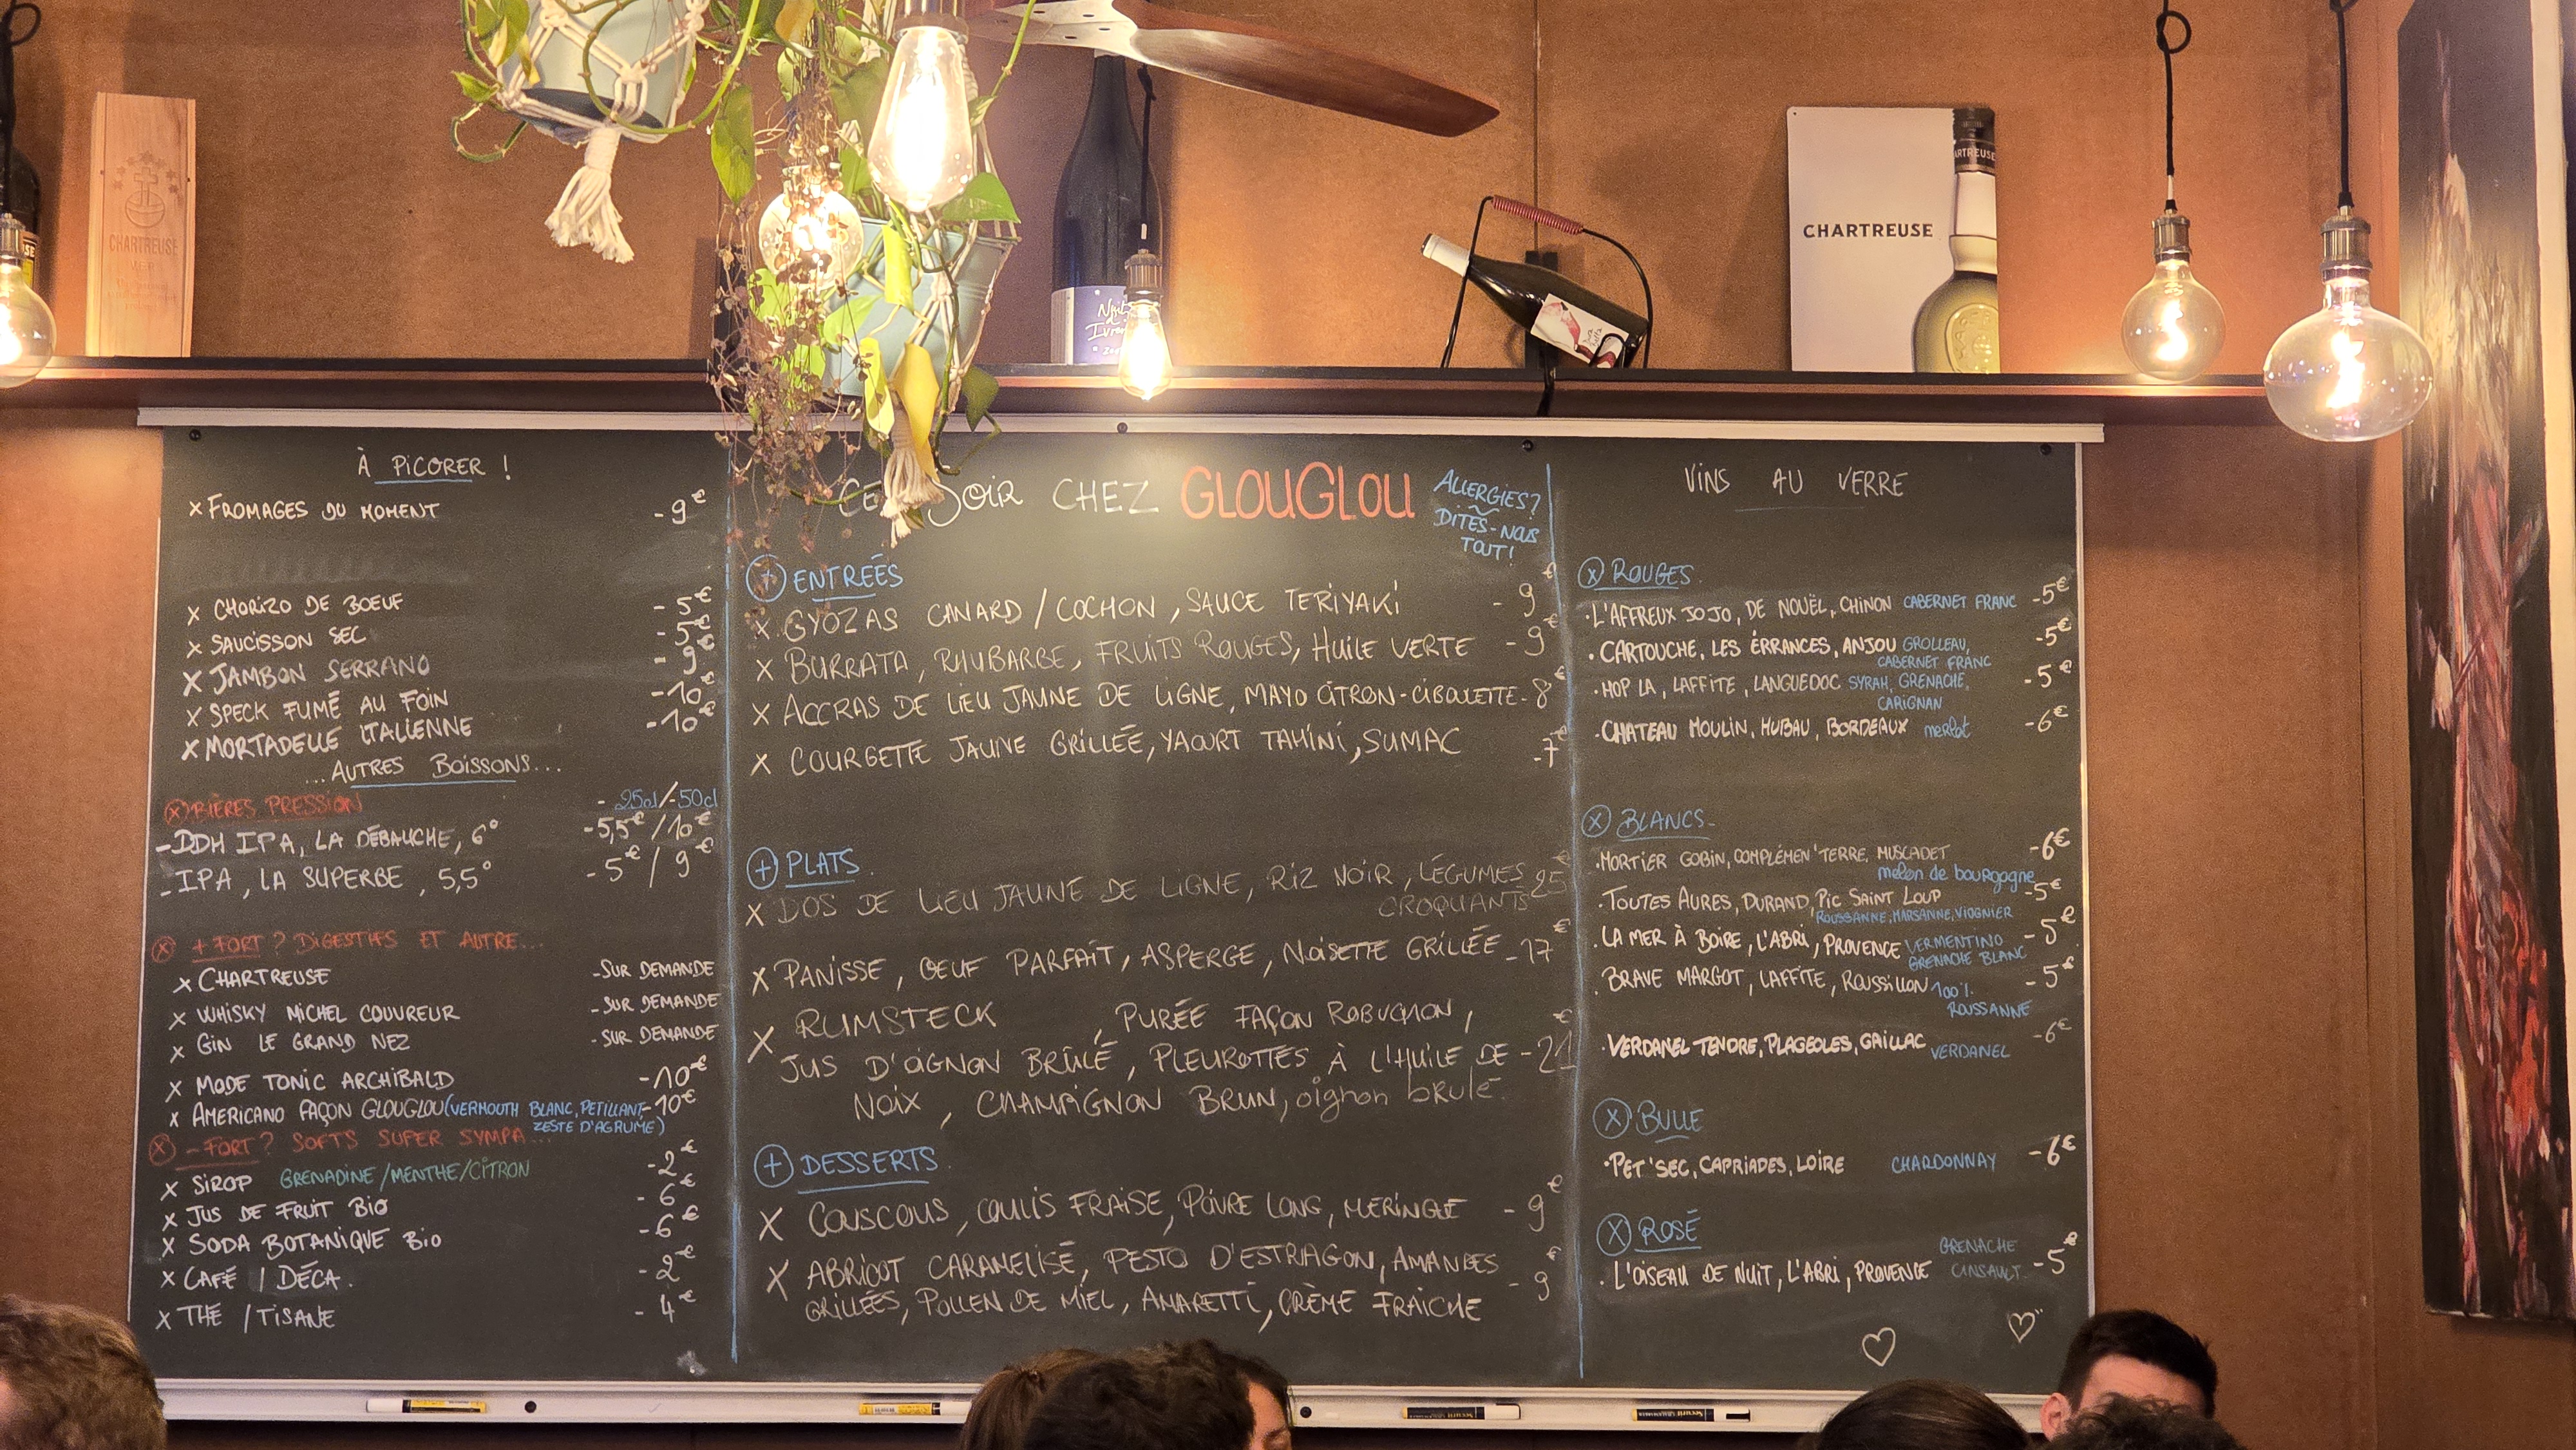 CHARTREUSE
CHARTREUSE
ARTREUSE
À PICORER !
X FROMAGES DU MOMENT - 9€
X CHORIZO DE BOEUF - 5€
X SAUCISSON SEC - 5€
X JAMBON SERRANO - 9€
X SPECK FUMÉ AU FOIN - 10€
X MORTADELLE ITALIENNE - 10€
... AUTRES BOISSONS...
X BIÈRES PRESSION - 25cl/-50cl
- DDH IPA, LA DÉBAUCHE, 6° - 5,5€ / 10€
- IPA, LA SUPERBE, 5,5° - 5€ / 9€
X + FORT ? DIGESTIFS ET AUTRE...
X CHARTREUSE - SUR DEMANDE
X WHISKY MICHEL COUVREUR - SUR DEMANDE
X GIN LE GRAND NEZ - SUR DEMANDE
X MODE TONIC ARCHIBALD - 10€
X AMERICANO FAÇON GLOUGLOU (VERMOUTH BLANC, PETILLANT - 10€
ZESTE D'AGRUME)
X - FORT ? SOFTS SUPER SYMPA...
X SIROP GRENADINE/MENTHE/CITRON - 2€
X JUS DE FRUIT BIO - 6€
X SODA BOTANIQUE BIO - 6€
X CAFÉ / DÉCA. - 2€
X THE / TISANE - 4€
CE SOIR CHEZ GLOUGLOU
ALLERGIES?
DITES-NOUS
TOUT!
+ ENTREÉS
X GYOZAS CANARD / COCHON, SAUCE TERIYAKI - 9€
X BURRATA, RHUBARBE, FRUITS ROUGES, HUILE VERTE - 9€
X ACCRAS DE LIEU JAUNE DE LIGNE, MAYO CITRON-CIBOULETTE - 8€
X COURGETTE JAUNE GRILLÉE, YAOURT TAHINI, SUMAC - 7€
+ PLATS.
X DOS DE LIEU JAUNE DE LIGNE, RIZ NOIR, LÉGUMES - 25€
CROQUANTS
X PANISSE, OEUF PARFAIT, ASPERGE, NOISETTE GRILLÉE - 17€
X RUMSTECK , PURÉE FAÇON ROBUCHON,
JUS D'OIGNON BRÛLÉ, PLEUROTTES À L'HUILE DE - 21€
NOIX, CHAMPIGNON BRUN, oignon brulé.
+ DESSERTS.
X COUSCOUS, COULIS FRAISE, POIVRE LONG, MERINGUE - 9€
X ABRICOT CARAMELISÉ, PESTO D'ESTRAGON, AMANDES - 9€
GRILLÉES, POLLEN DE MIEL, AMARETTI, CRÈME FRAICHE
VINS AU VERRE
X ROUGES
· L'AFFREUX JOJO, DE NOUËL, CHINON CABERNET FRANC - 5€
· CARTOUCHE, LES ÉRRANCES, ANJOU GROLLEAU, - 5€
CABERNET FRANC
· HOP LA, LAFFITE, LANGUEDOC SYRAH, GRENACHE, - 5€
CARIGNAN
· CHATEAU MOULIN, HUBAU, BORDEAUX merlot - 6€
X BLANCS-
· MORTIER GOBIN, COMPLÉMEN'TERRE, MUSCADET - 6€
melon de bourgogne
· TOUTES AURES, DURAND, PIC SAINT LOUP - 5€
ROUSSANNE, MARSANNE, VIOGNIER
· LA MER À BOIRE, L'ABRI, PROVENCE VERMENTINO - 5€
GRENACHE BLANC
· BRAVE MARGOT, LAFFITE, ROUSSILLON 100% - 5€
ROUSSANNE
· VERDANEL TENDRE, PLAGEOLES, GAILLAC VERDANEL - 6€
X BULLE
· PET'SEC, CAPRIADES, LOIRE CHARDONNAY - 6€
X ROSÉ
GRENACHE
· L'OISEAU DE NUIT, L'ABRI, PROVENCE CINSAULT - 5€